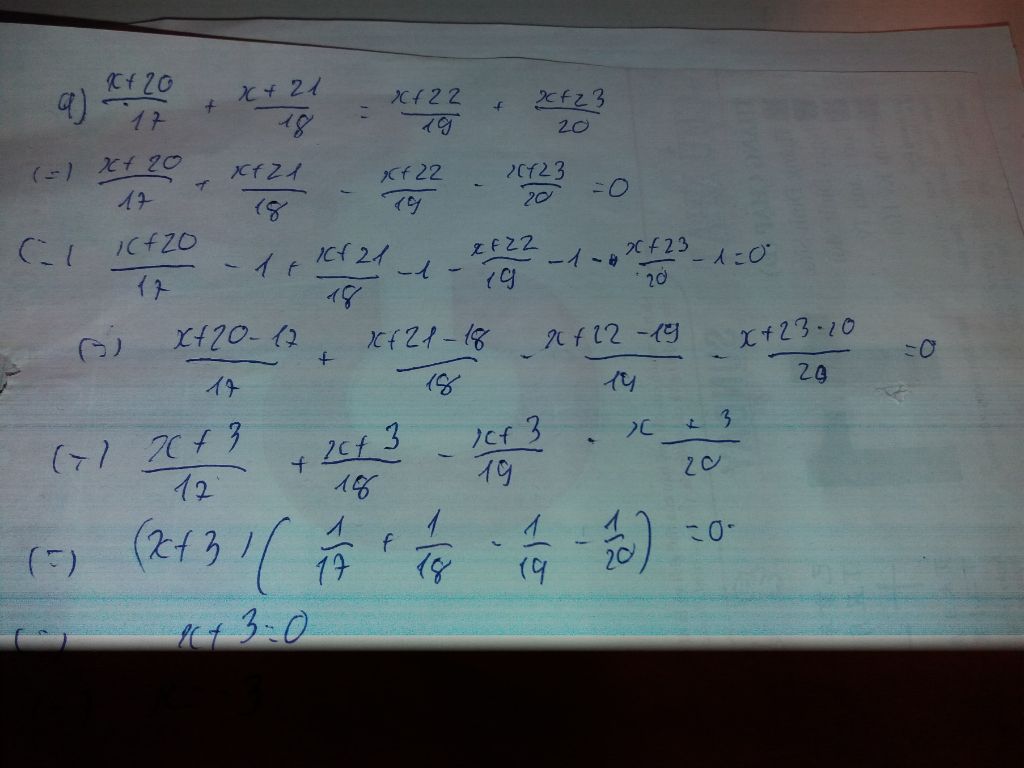 a) (x+20)/17 + (x+21)/18 = (x+22)/19 + (x+23)/20
(=) (x+20)/17 + (x+21)/18 - (x+22)/19 - (x+23)/20 = 0
(=) (x+20)/17 - 1 + (x+21)/18 - 1 - (x+22)/19 - 1 - (x+23)/20 - 1 = 0
(=) (x+20-17)/17 + (x+21-18)/18 - (x+22-19)/19 - (x+23-20)/20 = 0
(=) (x+3)/17 + (x+3)/18 - (x+3)/19 - (x+3)/20
(=) (x+3)(1/17 + 1/18 - 1/19 - 1/20) = 0
(=) x+3=0
(=) x=-3